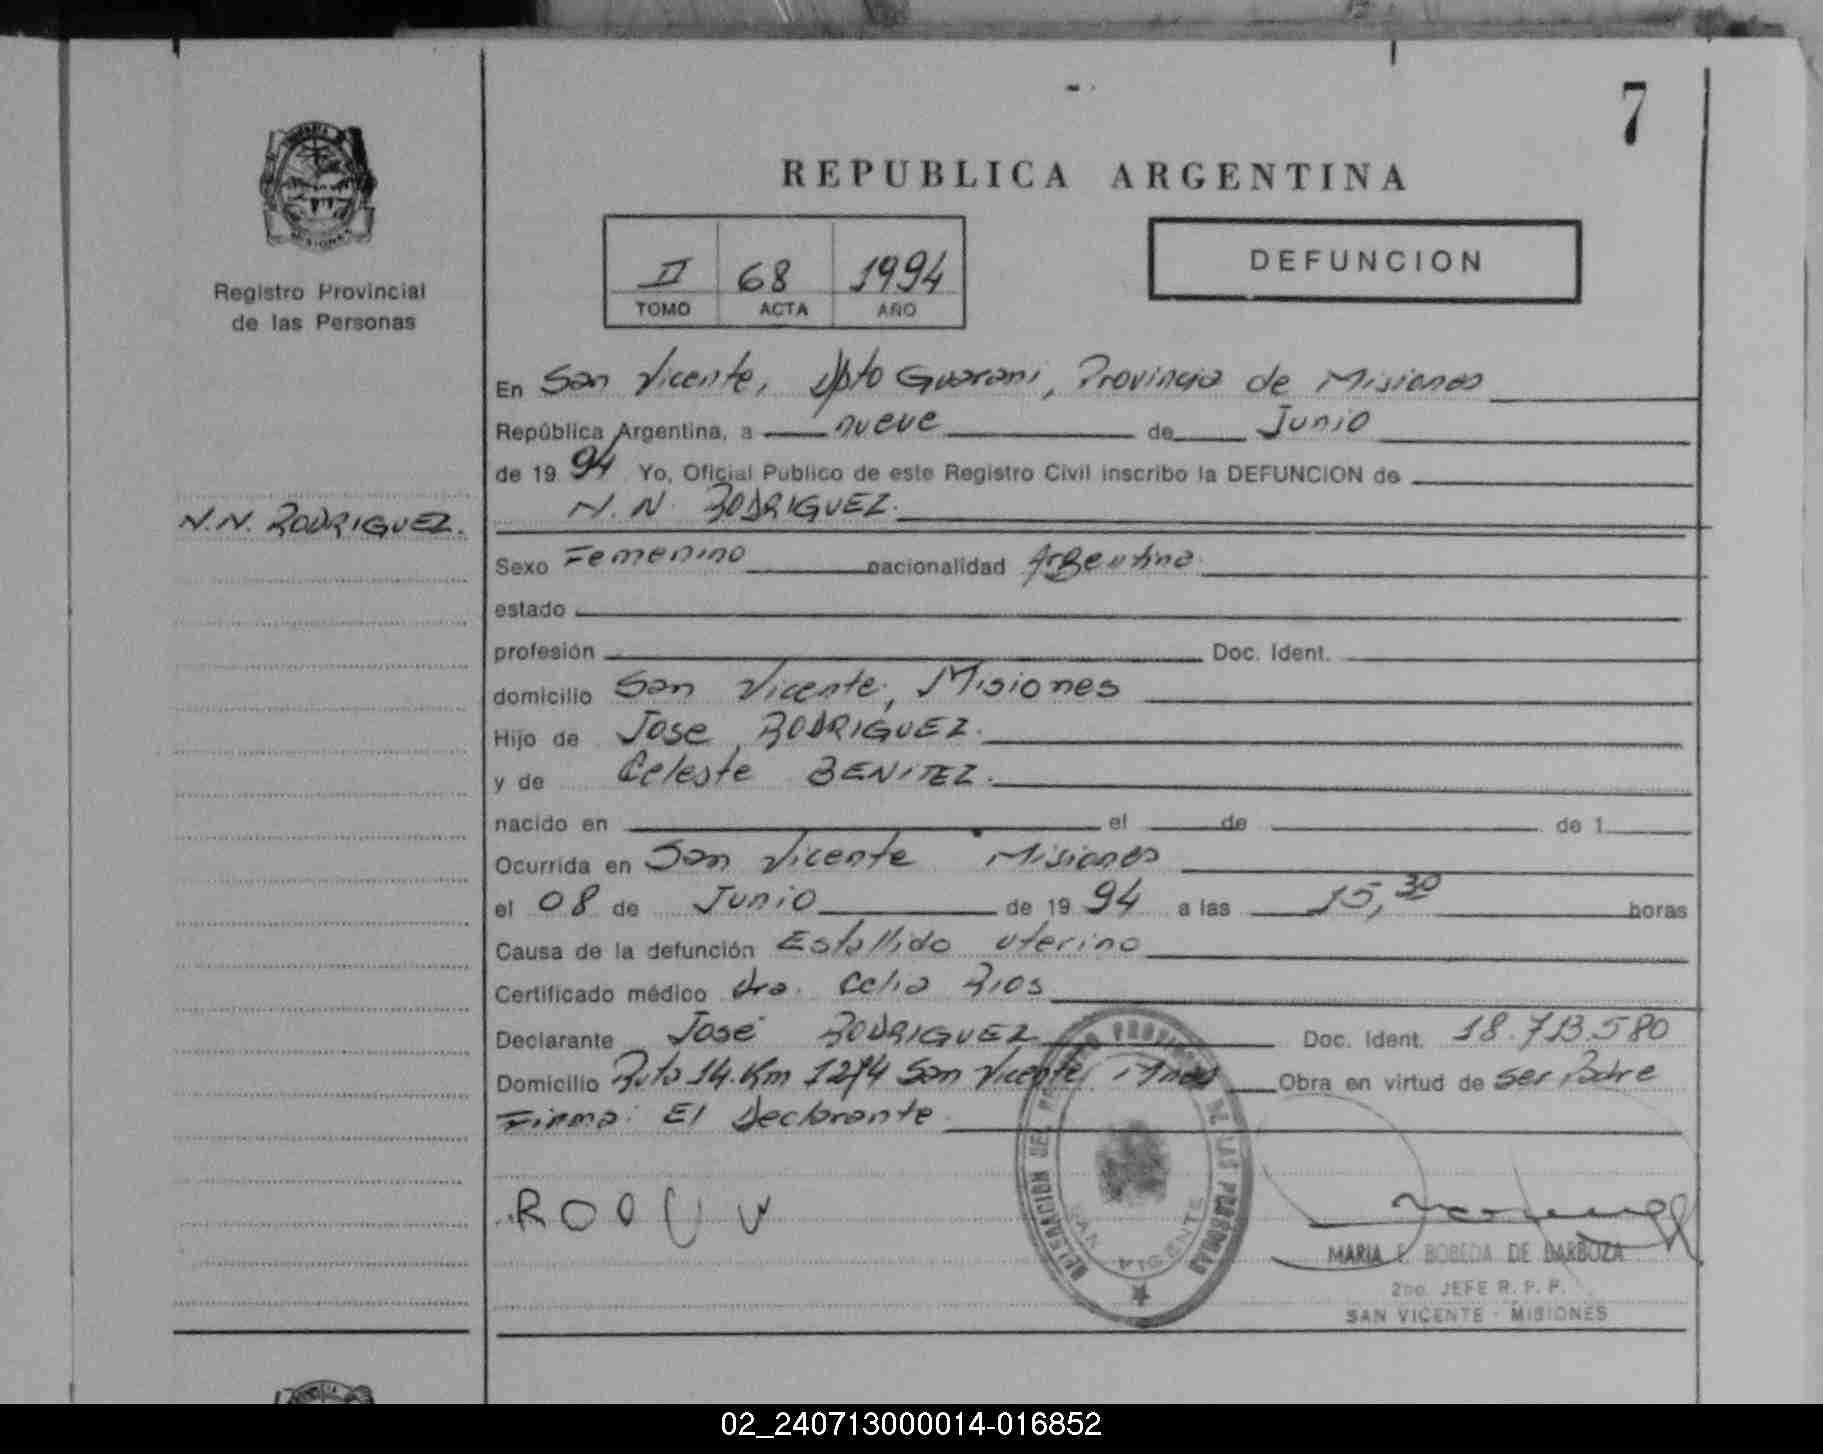 7
REPUBLICA ARGENTINA
II 68 1994
TOMO ACTA AÑO
DEFUNCION
MISIONES
Registro Provincial
de las Personas
N.N. RODRIGUEZ.
En San Vicente, Dpto Guarani, Provincia de Misiones
República Argentina, a nueve de Junio
de 1994 Yo, Oficial Público de este Registro Civil inscribo la DEFUNCION de
N. N. RODRIGUEZ.
Sexo Femenino nacionalidad Argentina
estado
profesión Doc. Ident.
domicilio San Vicente, Misiones
Hijo de Jose RODRIGUEZ.
y de Celeste BENITEZ.
nacido en el de de 1
Ocurrida en San Vicente Misiones
el 08 de Junio de 1994 a las 15,30 horas
Causa de la defunción Estallido uterino
Certificado médico Dra. Celia Rios
Declarante José RODRIGUEZ Doc. Ident. 18.713.580
Domicilio Ruta 14. Km 1274 San Vicente, Mnes Obra en virtud de ser Padre
Firma: El Declarante
DELEGACION DEL REGISTRO PROVINCIAL DE LAS PERSONAS
SAN VICENTE
MARIA E. BOBEDA DE BARBOZA
2do. JEFE R. P. P.
SAN VICENTE - MISIONES
02_240713000014-016852